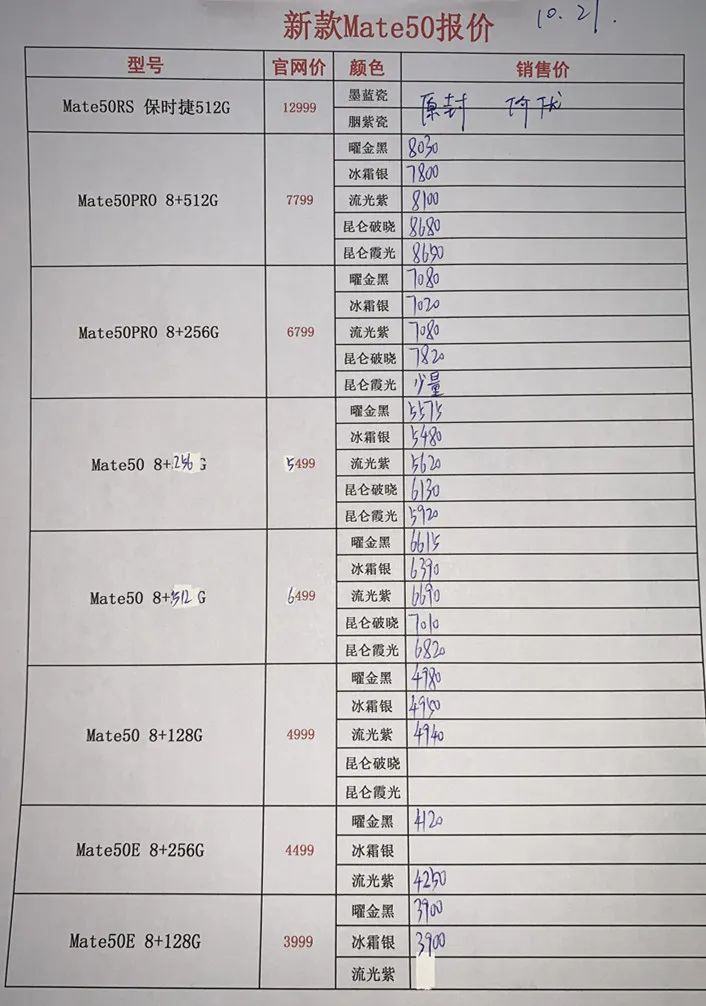 新款Mate50报价 10.21.
型号 官网价 颜色 销售价
Mate50RS 保时捷512G 12999 墨蓝瓷 原封
胭紫瓷
Mate50PRO 8+512G 7799 曜金黑 8030
冰霜银 7800
流光紫 8100
昆仑破晓 8680
昆仑霞光 8650
Mate50PRO 8+256G 6799 曜金黑 7080
冰霜银 7020
流光紫 7080
昆仑破晓 7820
昆仑霞光 少量
Mate50 8+256G 5499 曜金黑 5575
冰霜银 5480
流光紫 5620
昆仑破晓 6130
昆仑霞光 5920
Mate50 8+512G 6499 曜金黑 6615
冰霜银 6390
流光紫 6690
昆仑破晓 7010
昆仑霞光 6820
Mate50 8+128G 4999 曜金黑 4980
冰霜银 4950
流光紫 4940
昆仑破晓
昆仑霞光
Mate50E 8+256G 4499 曜金黑 4120
冰霜银
流光紫 4250
Mate50E 8+128G 3999 曜金黑 3900
冰霜银 3900
流光紫